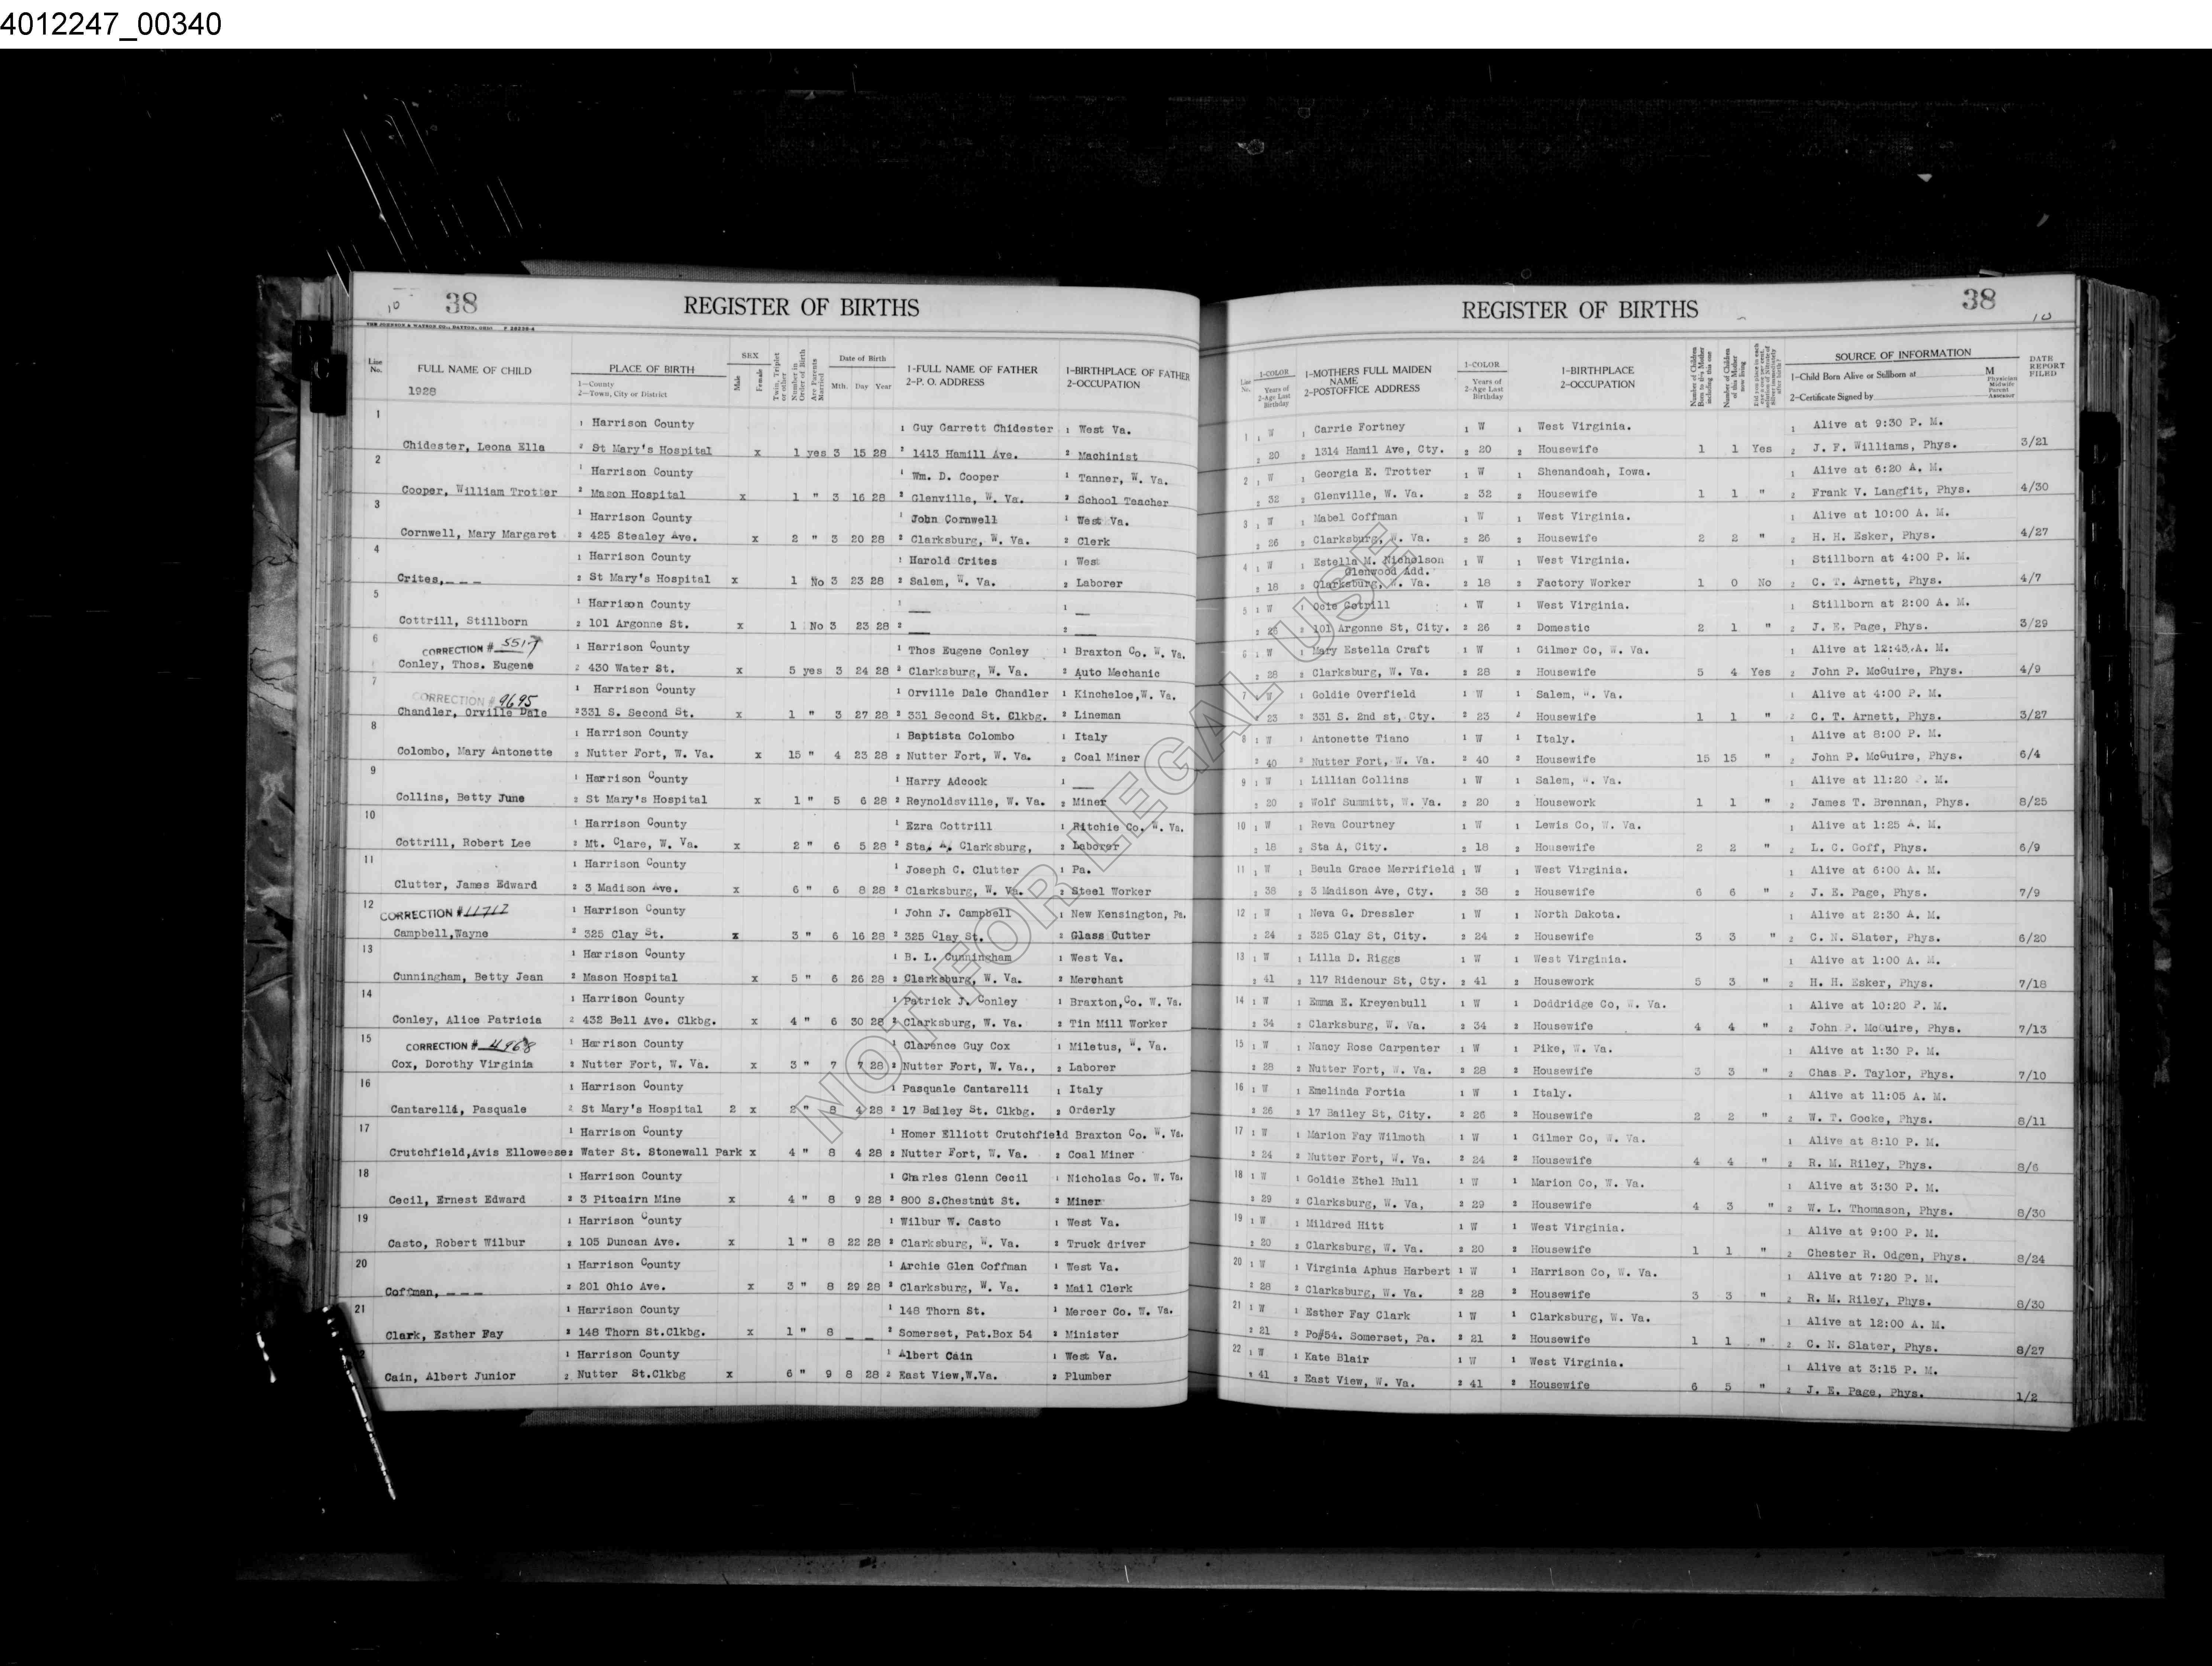 4012247_00340
10 38 REGISTER OF BIRTHS
THE JOHNSON & WATSON CO., DAYTON, OHIO F 28236-4
Line No. FULL NAME OF CHILD PLACE OF BIRTH SEX Male Female Twin, Triplet or other Number in Order of Birth Are Parents Married Date of Birth Mth. Day Year 1-FULL NAME OF FATHER 1-BIRTHPLACE OF FATHER
1928 1—County 2—Town, City or District 2-P. O. ADDRESS 2-OCCUPATION
1 1 Harrison County 1 Guy Garrett Chidester 1 West Va.
Chidester, Leona Ella 2 St Mary's Hospital x 1 yes 3 15 28 2 1413 Hamill Ave. 2 Machinist
2 1 Harrison County 1 Wm. D. Cooper 1 Tanner, W. Va.
Cooper, William Trotter 2 Mason Hospital x 1 " 3 16 28 2 Glenville, W. Va. 2 School Teacher
3 1 Harrison County 1 John Cornwell 1 West Va.
Cornwell, Mary Margaret 2 425 Stealey Ave. x 2 " 3 20 28 2 Clarksburg, W. Va. 2 Clerk
4 1 Harrison County 1 Harold Crites 1 Wes
Crites,_ _ _ 2 St Mary's Hospital x 1 No 3 23 28 2 Salem, W. Va. 2 Laborer
5 1 Harrison County 1 ___ 1 __
Cottrill, Stillborn 2 101 Argonne St. x 1 No 3 23 28 2 ___ 2 ___
6 CORRECTION # 5517 1 Harrison County 1 Thos Eugene Conley 1 Braxton Co. W. Va.
Conley, Thos. Eugene 2 430 Water St. x 5 yes 3 24 28 2 Clarksburg, W. Va. 2 Auto Mechanic
7 CORRECTION # 9695 1 Harrison County 1 Orville Dale Chandler 1 Kincheloe,W. Va.
Chandler, Orville Dale 2 331 S. Second St. x 1 " 3 27 28 2 331 Second St. Clkbg. 2 Lineman
8 1 Harrison County 1 Baptista Colombo 1 Italy
Colombo, Mary Antonette 2 Nutter Fort, W. Va. x 15 " 4 23 28 2 Nutter Fort, W. Va. 2 Coal Miner
9 1 Harrison County 1 Harry Adcock 1 ___
Collins, Betty June 2 St Mary's Hospital x 1 " 5 6 28 2 Reynoldsville, W. Va. 2 Miner
10 1 Harrison County 1 Ezra Cottrill 1 Ritchie Co. W. Va.
Cottrill, Robert Lee 2 Mt. Clare, W. Va. x 2 " 6 5 28 2 Sta. A. Clarksburg, 2 Laborer
11 1 Harrison County 1 Joseph C. Clutter 1 Pa.
Clutter, James Edward 2 3 Madison Ave. x 6 " 6 8 28 2 Clarksburg, W. Va. 2 Steel Worker
12 CORRECTION # 11712 1 Harrison County 1 John J. Campbell 1 New Kensington, Pa.
Campbell,Wayne 2 325 Clay St. x 3 " 6 16 28 2 325 Clay St. 2 Glass Cutter
13 1 Harrison County 1 B. L. Cunningham 1 West Va.
Cunningham, Betty Jean 2 Mason Hospital x 5 " 6 26 28 2 Clarksburg, W. Va. 2 Merchant
14 1 Harrison County 1 Patrick J. Conley 1 Braxton,Co. W. Va.
Conley, Alice Patricia 2 432 Bell Ave. Clkbg. x 4 " 6 30 28 2 Clarksburg, W. Va. 2 Tin Mill Worker
15 CORRECTION # 4968 1 Harrison County 1 Clarence Guy Cox 1 Miletus, W. Va.
Cox, Dorothy Virginia 2 Nutter Fort, W. Va. x 3 " 7 7 28 2 Nutter Fort, W. Va., 2 Laborer
16 1 Harrison County 1 Pasquale Cantarelli 1 Italy
Cantarelli, Pasquale 2 St Mary's Hospital 2 x 2 " 8 4 28 2 17 Bailey St. Clkbg. 2 Orderly
17 1 Harrison County 1 Homer Elliott Crutchfield Braxton Co. W. Va.
Crutchfield,Avis Elloweese 2 Water St. Stonewall Park x 4 " 8 4 28 2 Nutter Fort, W. Va. 2 Coal Miner
18 1 Harrison County 1 Charles Glenn Cecil 1 Nicholas Co. W. Va.
Cecil, Ernest Edward 2 3 Pitcairn Mine x 4 " 8 9 28 2 800 S.Chestnut St. 2 Miner
19 1 Harrison County 1 Wilbur W. Casto 1 West Va.
Casto, Robert Wilbur 2 105 Duncan Ave. x 1 " 8 22 28 2 Clarksburg, W. Va. 2 Truck driver
20 1 Harrison County 1 Archie Glen Coffman 1 West Va.
Coffman, _ _ _ 2 201 Ohio Ave. x 3 " 8 29 28 2 Clarksburg, W. Va. 2 Mail Clerk
21 1 Harrison County 1 148 Thorn St. 1 Mercer Co. W. Va.
Clark, Esther Fay 2 148 Thorn St.Clkbg. x 1 " 8 _ _ 2 Somerset, Pat.Box 54 2 Minister
2 1 Harrison County 1 Albert Cain 1 West Va.
Cain, Albert Junior 2 Nutter St.Clkbg x 6 " 9 8 28 2 East View,W.Va. 2 Plumber
REGISTER OF BIRTHS 38 10
Line No. 1-COLOR Years of 2-Age Last Birthday 1-MOTHERS FULL MAIDEN NAME 2-POSTOFFICE ADDRESS 1-COLOR Years of 2-Age Last Birthday 1-BIRTHPLACE 2-OCCUPATION Number of Children Born to this Mother including this one Number of Children of this Mother now living SOURCE OF INFORMATION DATE REPORT FILED
1-Child Born Alive or Stillborn at M
2-Certificate Signed by Physician Midwife Parent Assessor
1 1 W 1 Carrie Fortney 1 W 1 West Virginia. 1 Alive at 9:30 P. M.
2 20 2 1314 Hamil Ave, Cty. 2 20 2 Housewife 1 1 Yes 2 J. F. Williams, Phys. 3/21
2 1 W 1 Georgia E. Trotter 1 W 1 Shenandoah, Iowa. 1 Alive at 6:20 A. M.
2 32 2 Glenville, W. Va. 2 32 2 Housewife 1 1 " 2 Frank V. Langfit, Phys. 4/30
3 1 W 1 Mabel Coffman 1 W 1 West Virginia. 1 Alive at 10:00 A. M.
2 26 2 Clarksburg, W. Va. 2 26 2 Housewife 2 2 " 2 H. H. Esker, Phys. 4/27
4 1 W 1 Estella M. Nicholson 1 W 1 West Virginia. 1 Stillborn at 4:00 P. M.
Glenwood Add.
2 18 2 Clarksburg, W. Va. 2 18 2 Factory Worker 1 0 No 2 C. T. Arnett, Phys. 4/7
5 1 W 1 Ocie Cotrill 1 W 1 West Virginia. 1 Stillborn at 2:00 A. M.
2 26 2 101 Argonne St, City. 2 26 2 Domestic 2 1 " 2 J. E. Page, Phys. 3/29
6 1 W 1 Mary Estella Craft 1 W 1 Gilmer Co, W. Va. 1 Alive at 12:45 A. M.
2 28 2 Clarksburg, W. Va. 2 28 2 Housewife 5 4 Yes 2 John P. McGuire, Phys. 4/9
7 1 W 1 Goldie Overfield 1 W 1 Salem, W. Va. 1 Alive at 4:00 P. M.
2 23 2 331 S. 2nd st, Cty. 2 23 2 Housewife 1 1 " 2 C. T. Arnett, Phys. 3/27
8 1 W 1 Antonette Tiano 1 W 1 Italy. 1 Alive at 8:00 P. M.
2 40 2 Nutter Fort, W. Va. 2 40 2 Housewife 15 15 " 2 John P. McGuire, Phys. 6/4
9 1 W 1 Lillian Collins 1 W 1 Salem, W. Va. 1 Alive at 11:20 P. M.
2 20 2 Wolf Summitt, W. Va. 2 20 2 Housework 1 1 " 2 James T. Brennan, Phys. 8/25
10 1 W 1 Reva Courtney 1 W 1 Lewis Co, W. Va. 1 Alive at 1:25 A. M.
2 18 2 Sta A, City. 2 18 2 Housewife 2 2 " 2 L. C. Goff, Phys. 6/9
11 1 W 1 Beula Grace Merrifield 1 W 1 West Virginia. 1 Alive at 6:00 A. M.
2 38 2 3 Madison Ave, Cty. 2 38 2 Housewife 6 6 " 2 J. E. Page, Phys. 7/9
12 1 W 1 Neva G. Dressler 1 W 1 North Dakota. 1 Alive at 2:30 A. M.
2 24 2 325 Clay St, City. 2 24 2 Housewife 3 3 " 2 C. N. Slater, Phys. 6/20
13 1 W 1 Lilla D. Riggs 1 W 1 West Virginia. 1 Alive at 1:00 A. M.
2 41 2 117 Ridenour St, Cty. 2 41 2 Housework 5 3 " 2 H. H. Esker, Phys. 7/18
14 1 W 1 Emma E. Kreyenbull 1 W 1 Doddridge Co, W. Va. 1 Alive at 10:20 P. M.
2 34 2 Clarksburg, W. Va. 2 34 2 Housewife 4 4 " 2 John P. McGuire, Phys. 7/13
15 1 W 1 Nancy Rose Carpenter 1 W 1 Pike, W. Va. 1 Alive at 1:30 P. M.
2 28 2 Nutter Fort, W. Va. 2 28 2 Housewife 3 3 " 2 Chas P. Taylor, Phys. 7/10
16 1 W 1 Emelinda Fortia 1 W 1 Italy. 1 Alive at 11:05 A. M.
2 26 2 17 Bailey St, City. 2 26 2 Housewife 2 2 " 2 W. T. Gocke, Phys. 8/11
17 1 W 1 Marion Fay Wilmoth 1 W 1 Gilmer Co, W. Va. 1 Alive at 8:10 P. M.
2 24 2 Nutter Fort, W. Va. 2 24 2 Housewife 4 4 " 2 R. M. Riley, Phys. 8/6
18 1 W 1 Goldie Ethel Hull 1 W 1 Marion Co, W. Va. 1 Alive at 3:30 P. M.
2 29 2 Clarksburg, W. Va, 2 29 2 Housewife 4 3 " 2 W. L. Thomason, Phys. 8/30
19 1 W 1 Mildred Hitt 1 W 1 West Virginia. 1 Alive at 9:00 P. M.
2 20 2 Clarksburg, W. Va. 2 20 2 Housewife 1 1 " 2 Chester R. Odgen, Phys. 8/24
20 1 W 1 Virginia Aphus Harbert 1 W 1 Harrison Co, W. Va. 1 Alive at 7:20 P. M.
2 28 2 Clarksburg, W. Va. 2 28 2 Housewife 3 3 " 2 R. M. Riley, Phys. 8/30
21 1 W 1 Esther Fay Clark 1 W 1 Clarksburg, W. Va. 1 Alive at 12:00 A. M.
2 21 2 Po#54. Somerset, Pa. 2 21 2 Housewife 1 1 " 2 C. N. Slater, Phys. 8/27
22 1 W 1 Kate Blair 1 W 1 West Virginia. 1 Alive at 3:15 P. M.
2 41 2 East View, W. Va. 2 41 2 Housewife 6 5 " 2 J. E. Page, Phys. 1/2
NOT FOR LEGAL USE